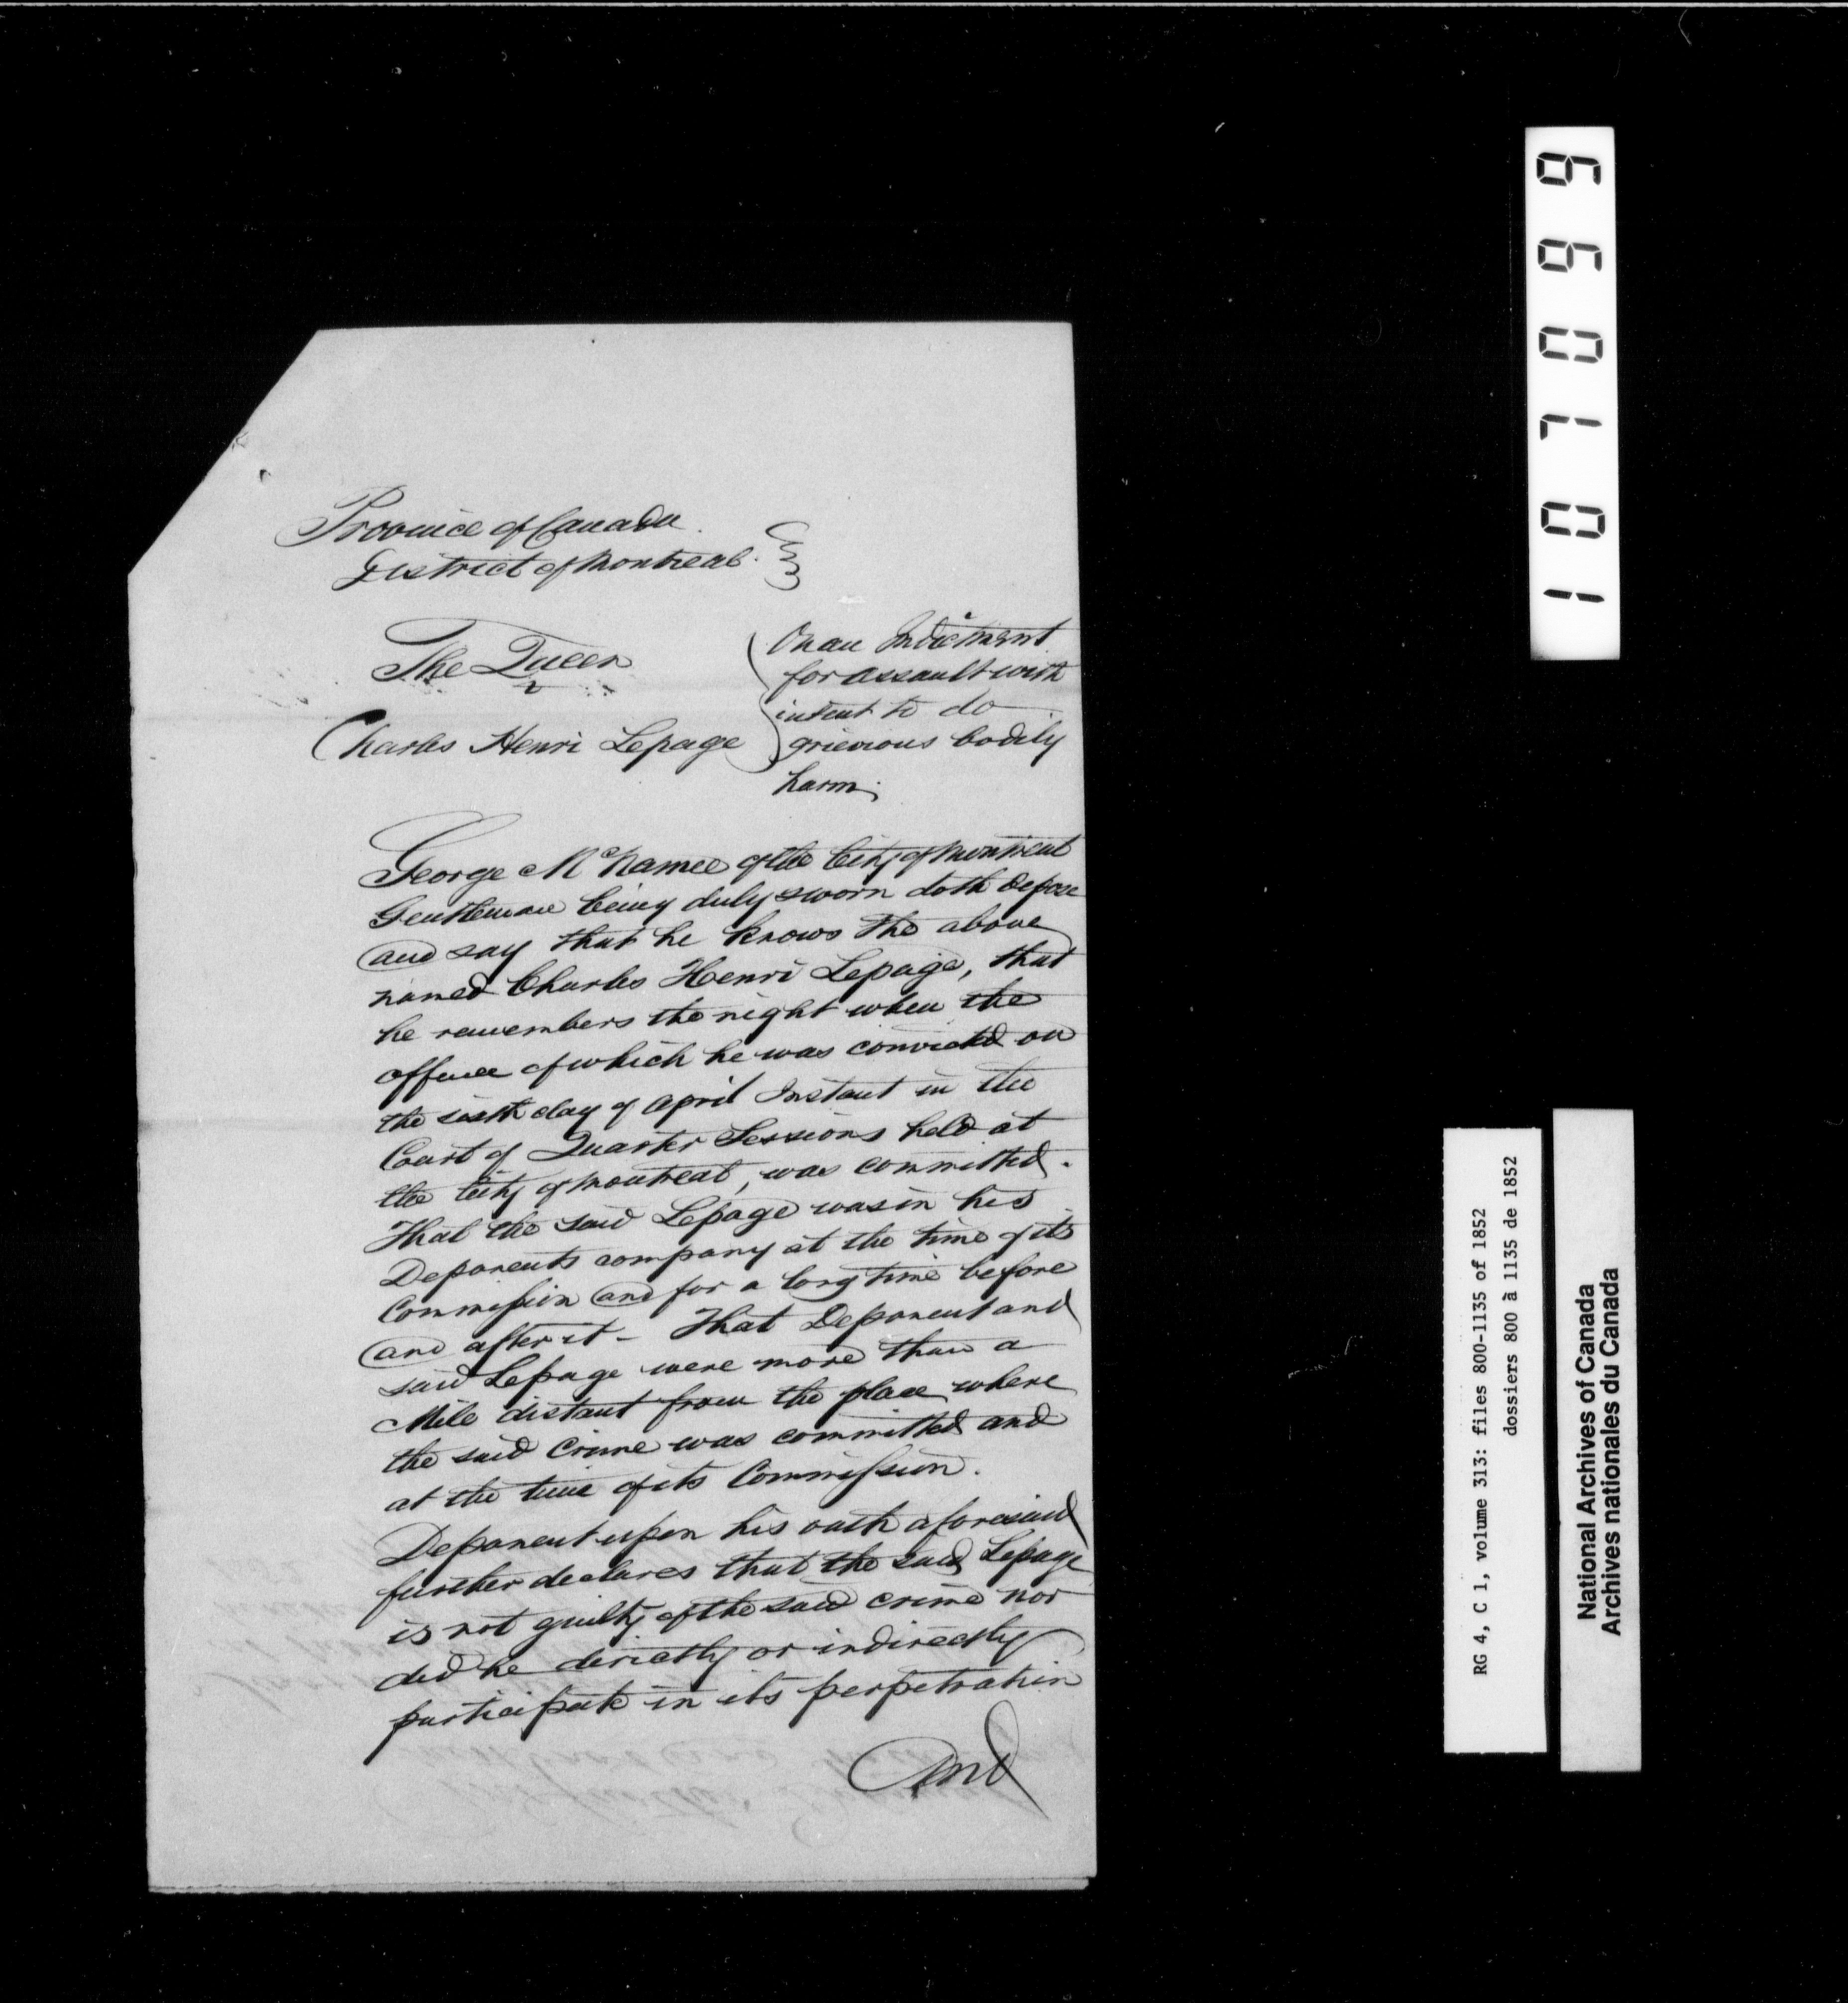 Province of Canada.
District of Montreal.
The Queen
v
Charles Henri Lepage
On an Indictment
for assault with
intent to do
grievious bodily
harm.
George McNamee of the City of Montreal
Gentleman being duly sworn doth depose
and say that he knows the above
named Charles Henri Lepage, that
he remembers the night when the
offence of which he was convicted on
the sixth day of April Instant in the
Court of Quarter Sessions held at
the City of Montreal, was committed.
That the said Lepage was in his
Deponents company at the time of its
Commission and for a long time before
and after it - That Deponent and
said Lepage were more than a
Mile distant from the place where
the said Crime was committed and
at the time of its Commission.
Deponent upon his oath aforesaid
further declares that the said Lepage
is not guilty of the said crime nor
did he directly or indirectly
participate in its perpetration
And
107099
RG 4, C 1, volume 313: files 800-1135 of 1852
dossiers 800 à 1135 de 1852
National Archives of Canada
Archives nationales du Canada